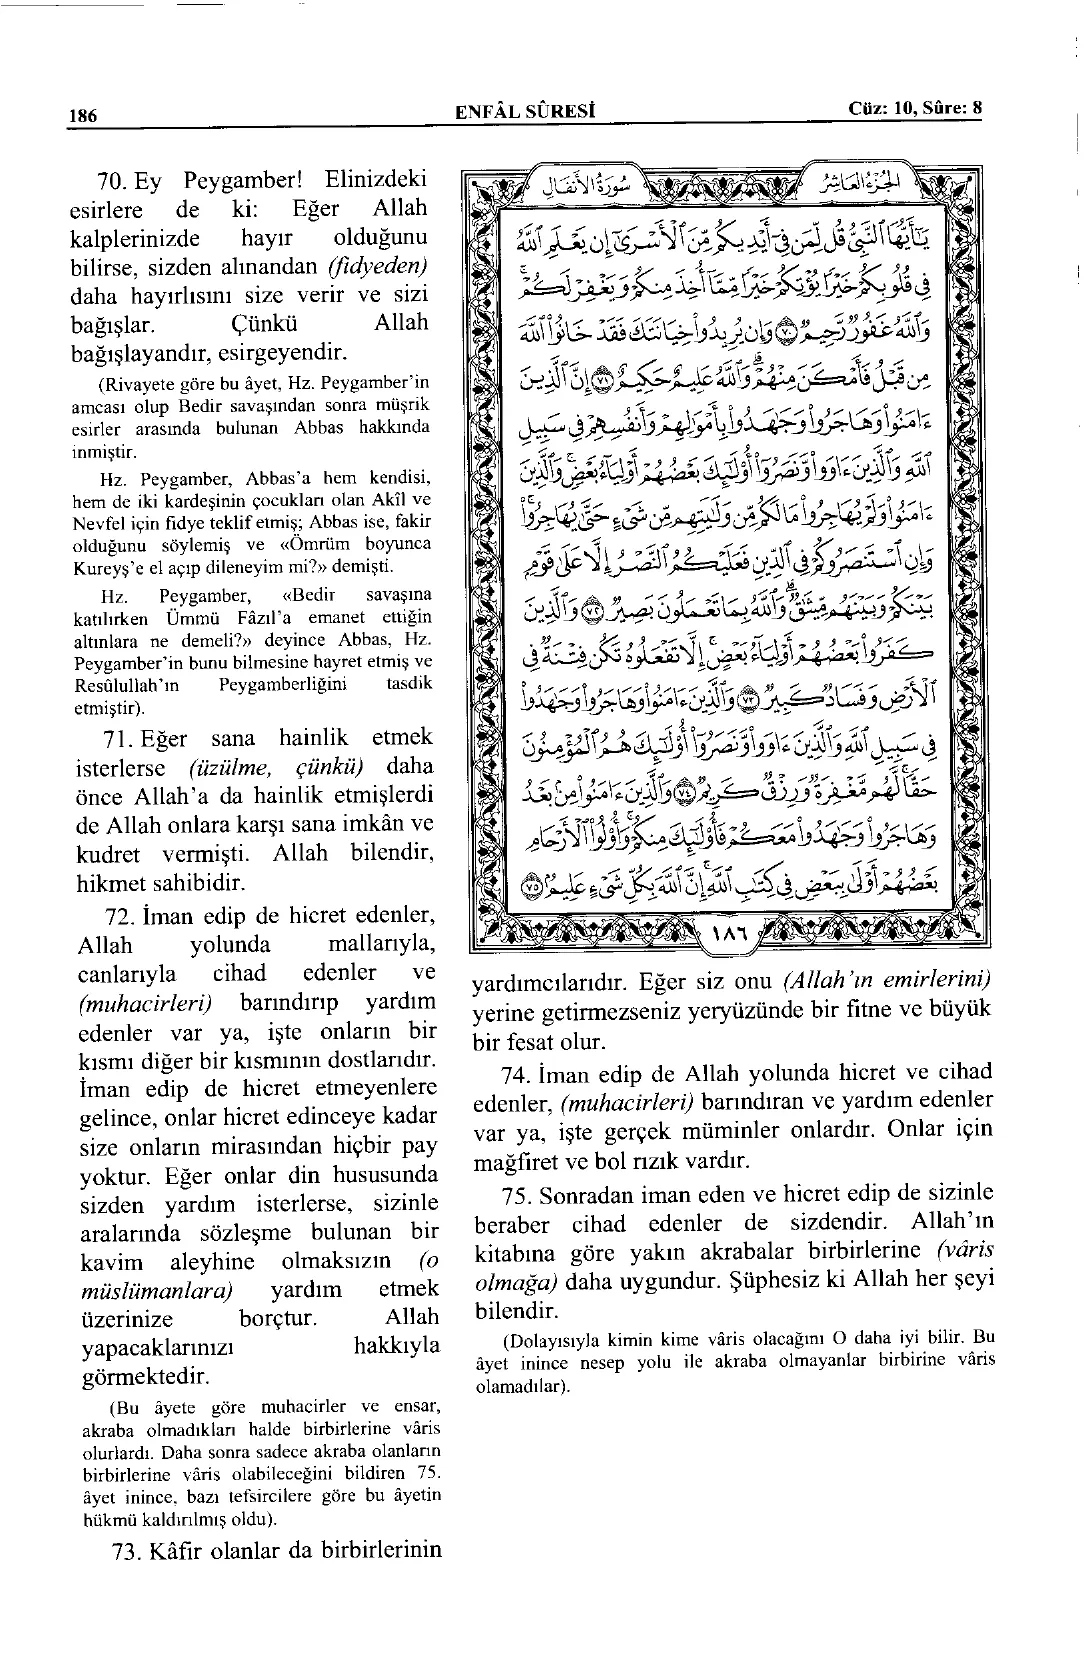 186
ENFÂL SÛRESİ
Cüz: 10, Sûre: 8
70. Ey Peygamber! Elinizdeki
esirlere de ki: Eğer Allah
kalplerinizde hayır olduğunu
bilirse, sizden alınandan (fidyeden)
daha hayırlısını size verir ve sizi
bağışlar. Çünkü Allah
bağışlayandır, esirgeyendir.
(Rivayete göre bu âyet, Hz. Peygamber'in
amcası olup Bedir savaşından sonra müşrik
esirler arasında bulunan Abbas hakkında
inmiştir.
Hz. Peygamber, Abbas'a hem kendisi,
hem de iki kardeşinin çocukları olan Akîl ve
Nevfel için fidye teklif etmiş; Abbas ise, fakir
olduğunu söylemiş ve «Ömrüm boyunca
Kureyş'e el açıp dileneyim mi?» demişti.
Hz. Peygamber, «Bedir savaşına
katılırken Ümmü Fâzıl'a emanet ettiğin
altınlara ne demeli?» deyince Abbas, Hz.
Peygamber'in bunu bilmesine hayret etmiş ve
Resûlullah'ın Peygamberliğini tasdik
etmiştir).
71. Eğer sana hainlik etmek
isterlerse (üzülme, çünkü) daha
önce Allah'a da hainlik etmişlerdi
de Allah onlara karşı sana imkân ve
kudret vermişti. Allah bilendir,
hikmet sahibidir.
72. İman edip de hicret edenler,
Allah yolunda mallarıyla,
canlarıyla cihad edenler ve
(muhacirleri) barındırıp yardım
edenler var ya, işte onların bir
kısmı diğer bir kısmının dostlarıdır.
İman edip de hicret etmeyenlere
gelince, onlar hicret edinceye kadar
size onların mirasından hiçbir pay
yoktur. Eğer onlar din hususunda
sizden yardım isterlerse, sizinle
aralarında sözleşme bulunan bir
kavim aleyhine olmaksızın (o
müslümanlara) yardım etmek
üzerinize borçtur. Allah
yapacaklarınızı hakkıyla
görmektedir.
(Bu âyete göre muhacirler ve ensar,
akraba olmadıkları halde birbirlerine vâris
olurlardı. Daha sonra sadece akraba olanların
birbirlerine vâris olabileceğini bildiren 75.
âyet inince, bazı tefsircilere göre bu âyetin
hükmü kaldırılmış oldu).
73. Kâfir olanlar da birbirlerinin
الجزء العاشر
سورة الأنفال
يَٰٓأَيُّهَا ٱلنَّبِىُّ قُل لِّمَن فِىٓ أَيْدِيكُم مِّنَ ٱلْأَسْرَىٰٓ إِن يَعْلَمِ ٱللَّهُ
فِى قُلُوبِكُمْ خَيْرًا يُؤْتِكُمْ خَيْرًا مِّمَّآ أُخِذَ مِنكُمْ وَيَغْفِرْ لَكُمْ ۗ
وَٱللَّهُ غَفُورٌ رَّحِيمٌ ٧٠ وَإِن يُرِيدُوا۟ خِيَانَتَكَ فَقَدْ خَانُوا۟ ٱللَّهَ
مِن قَبْلُ فَأَمْكَنَ مِنْهُمْ ۗ وَٱللَّهُ عَلِيمٌ حَكِيمٌ ٧١ إِنَّ ٱلَّذِينَ
ءَامَنُوا۟ وَهَاجَرُوا۟ وَجَٰهَدُوا۟ بِأَمْوَٰلِهِمْ وَأَنفُسِهِمْ فِى سَبِيلِ
ٱللَّهِ وَٱلَّذِينَ ءَاوَوا۟ وَّنَصَرُوٓا۟ أُو۟لَٰٓئِكَ بَعْضُهُمْ أَوْلِيَآءُ بَعْضٍ ۚ وَٱلَّذِينَ
ءَامَنُوا۟ وَلَمْ يُهَاجِرُوا۟ مَا لَكُم مِّن وَلَٰيَتِهِم مِّن شَىْءٍ حَتَّىٰ يُهَاجِرُوا۟ ۚ
وَإِنِ ٱسْتَنصَرُوكُمْ فِى ٱلدِّينِ فَعَلَيْكُمُ ٱلنَّصْرُ إِلَّا عَلَىٰ قَوْمٍۭ
بَيْنَكُمْ وَبَيْنَهُم مِّيثَٰقٌ ۗ وَٱللَّهُ بِمَا تَعْمَلُونَ بَصِيرٌ ٧٢ وَٱلَّذِينَ
كَفَرُوا۟ بَعْضُهُمْ أَوْلِيَآءُ بَعْضٍ ۚ إِلَّا تَفْعَلُوهُ تَكُن فِتْنَةٌ فِى
ٱلْأَرْضِ وَفَسَادٌ كَبِيرٌ ٧٣ وَٱلَّذِينَ ءَامَنُوا۟ وَهَاجَرُوا۟ وَجَٰهَدُوا۟
فِى سَبِيلِ ٱللَّهِ وَٱلَّذِينَ ءَاوَوا۟ وَّنَصَرُوٓا۟ أُو۟لَٰٓئِكَ هُمُ ٱلْمُؤْمِنُونَ
حَقًّا ۚ لَّهُم مَّغْفِرَةٌ وَرِزْقٌ كَرِيمٌ ٧٤ وَٱلَّذِينَ ءَامَنُوا۟ مِنۢ بَعْدُ
وَهَاجَرُوا۟ وَجَٰهَدُوا۟ مَعَكُمْ فَأُو۟لَٰٓئِكَ مِنكُمْ ۚ وَأُو۟لُوا۟ ٱلْأَرْحَامِ
بَعْضُهُمْ أَوْلَىٰ بِبَعْضٍ فِى كِتَٰبِ ٱللَّهِ ۗ إِنَّ ٱللَّهَ بِكُلِّ شَىْءٍ عَلِيمٌۢ ٧٥
١٨٦
yardımcılarıdır. Eğer siz onu (Allah'ın emirlerini)
yerine getirmezseniz yeryüzünde bir fitne ve büyük
bir fesat olur.
74. İman edip de Allah yolunda hicret ve cihad
edenler, (muhacirleri) barındıran ve yardım edenler
var ya, işte gerçek müminler onlardır. Onlar için
mağfiret ve bol rızık vardır.
75. Sonradan iman eden ve hicret edip de sizinle
beraber cihad edenler de sizdendir. Allah'ın
kitabına göre yakın akrabalar birbirlerine (vâris
olmağa) daha uygundur. Şüphesiz ki Allah her şeyi
bilendir.
(Dolayısıyla kimin kime vâris olacağını O daha iyi bilir. Bu
âyet inince nesep yolu ile akraba olmayanlar birbirine vâris
olamadılar).